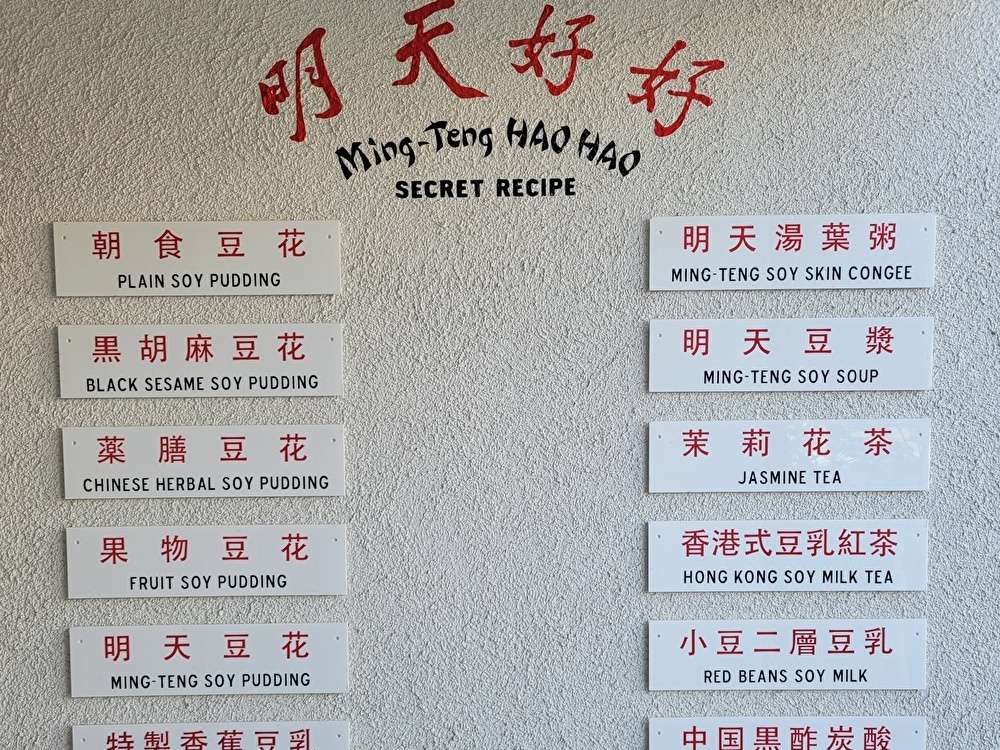 明天好好
Ming-Teng HAO HAO
SECRET RECIPE
朝食豆花
PLAIN SOY PUDDING
黒胡麻豆花
BLACK SESAME SOY PUDDING
薬膳豆花
CHINESE HERBAL SOY PUDDING
果物豆花
FRUIT SOY PUDDING
明天豆花
MING-TENG SOY PUDDING
特製香蕉豆乳
明天湯葉粥
MING-TENG SOY SKIN CONGEE
明天豆漿
MING-TENG SOY SOUP
茉莉花茶
JASMINE TEA
香港式豆乳紅茶
HONG KONG SOY MILK TEA
小豆二層豆乳
RED BEANS SOY MILK
中国黒酢炭酸